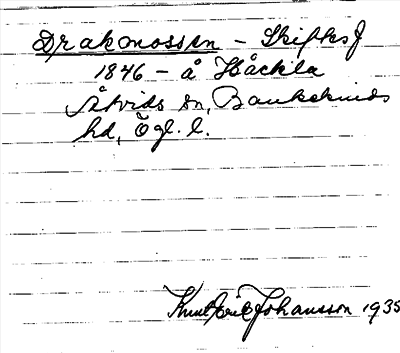 Drakamossen - Skifteskj
1846 - å Håckla
Åtvids sn, Bankekinds
hd, Ögl. l.
Knut Erik Johansson 1935